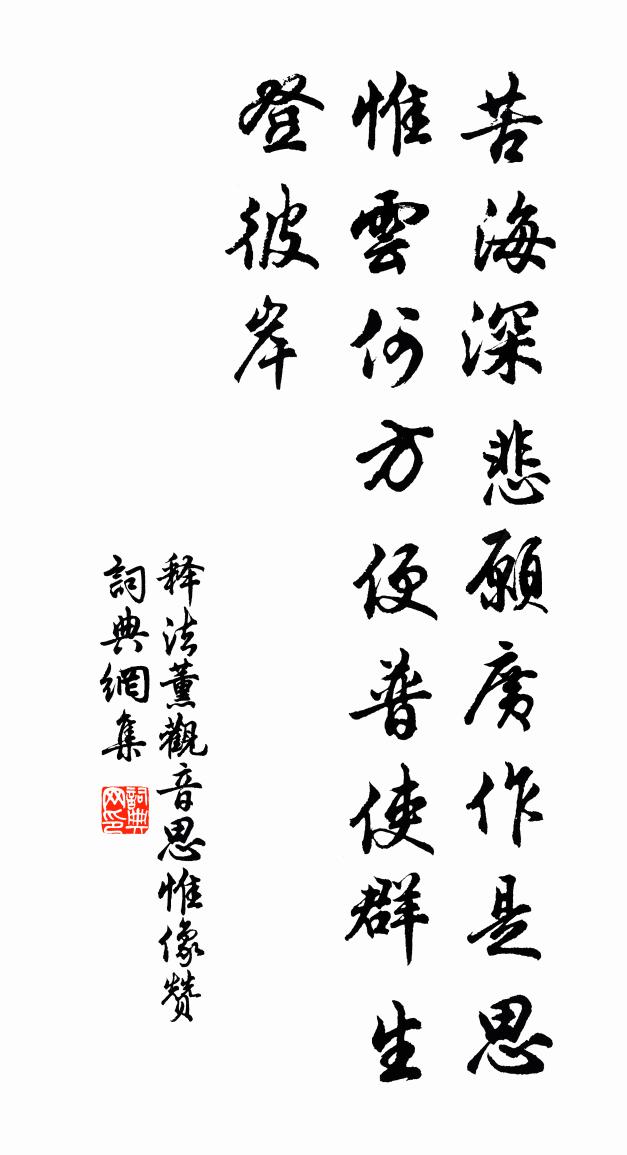 苦海深悲願廣作是思
惟雲何方便普使群生
登彼岸
释法薰觀音思惟像贊
詞典網集
詞典网印